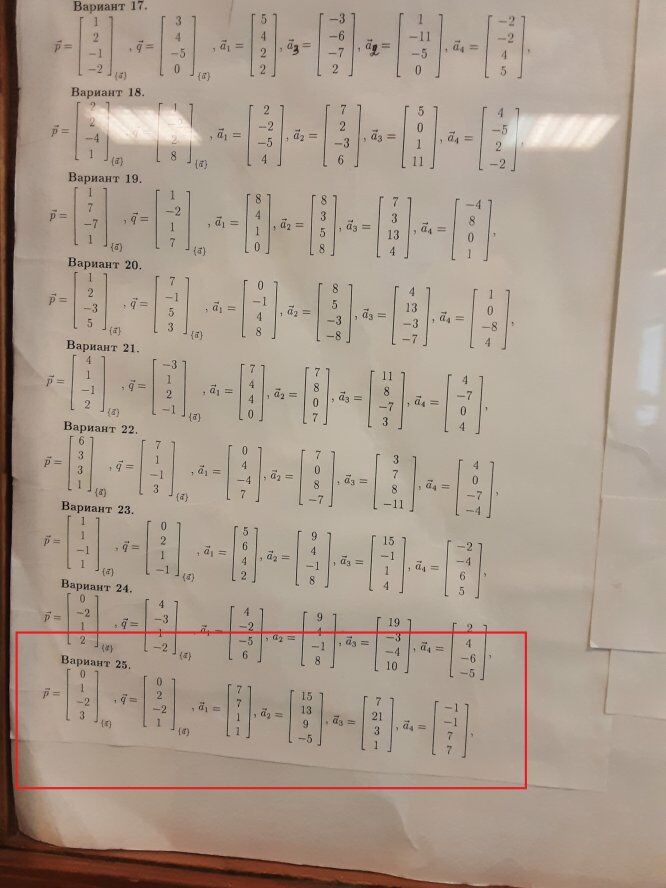 Вариант 17.
p⃗ = [1 2 −1 −2]{a⃗}, q⃗ = [3 4 −5 0]{a⃗}, a⃗1 = [5 4 2 2], a⃗3 = [−3 −6 −7 2], a⃗2 = [1 −11 −5 0], a⃗4 = [−2 −2 4 5],
Вариант 18.
p⃗ = [2 −4 1]{a⃗}, q⃗ = [1 2 8]{a⃗}, a⃗1 = [2 −2 −5 4], a⃗2 = [7 2 −3 6], a⃗3 = [5 0 1 11], a⃗4 = [4 −5 2 −2],
Вариант 19.
p⃗ = [1 7 −7 1]{a⃗}, q⃗ = [1 −2 1 7]{a⃗}, a⃗1 = [8 4 1 0], a⃗2 = [8 3 5 8], a⃗3 = [7 3 13 4], a⃗4 = [−4 8 0 1],
Вариант 20.
p⃗ = [1 2 −3 5]{a⃗}, q⃗ = [7 −1 5 3]{a⃗}, a⃗1 = [0 −1 4 8], a⃗2 = [8 5 −3 −8], a⃗3 = [4 13 −3 −7], a⃗4 = [1 0 −8 4],
Вариант 21.
p⃗ = [4 1 −1 2]{a⃗}, q⃗ = [−3 1 2 −1]{a⃗}, a⃗1 = [7 4 4 0], a⃗2 = [7 8 0 7], a⃗3 = [11 8 −7 3], a⃗4 = [4 −7 0 4],
Вариант 22.
p⃗ = [6 3 3 1]{a⃗}, q⃗ = [7 1 −1 3]{a⃗}, a⃗1 = [0 4 −4 7], a⃗2 = [7 0 8 −7], a⃗3 = [3 7 8 −11], a⃗4 = [4 0 −7 −4],
Вариант 23.
p⃗ = [1 1 −1 1]{a⃗}, q⃗ = [0 2 1 −1]{a⃗}, a⃗1 = [5 6 4 2], a⃗2 = [9 4 −1 8], a⃗3 = [15 −1 1 4], a⃗4 = [−2 −4 6 5],
Вариант 24.
p⃗ = [0 −2 1 2]{a⃗}, q⃗ = [4 −3 1 −2]{a⃗}, a⃗1 = [4 −2 −5 6], a⃗2 = [9 4 −1 8], a⃗3 = [19 −3 −4 10], a⃗4 = [2 4 −6 −5],
Вариант 25.
p⃗ = [0 1 −2 3]{a⃗}, q⃗ = [0 2 −2 1]{a⃗}, a⃗1 = [7 7 1 1], a⃗2 = [15 13 9 −5], a⃗3 = [7 21 3 1], a⃗4 = [−1 −1 7 7],